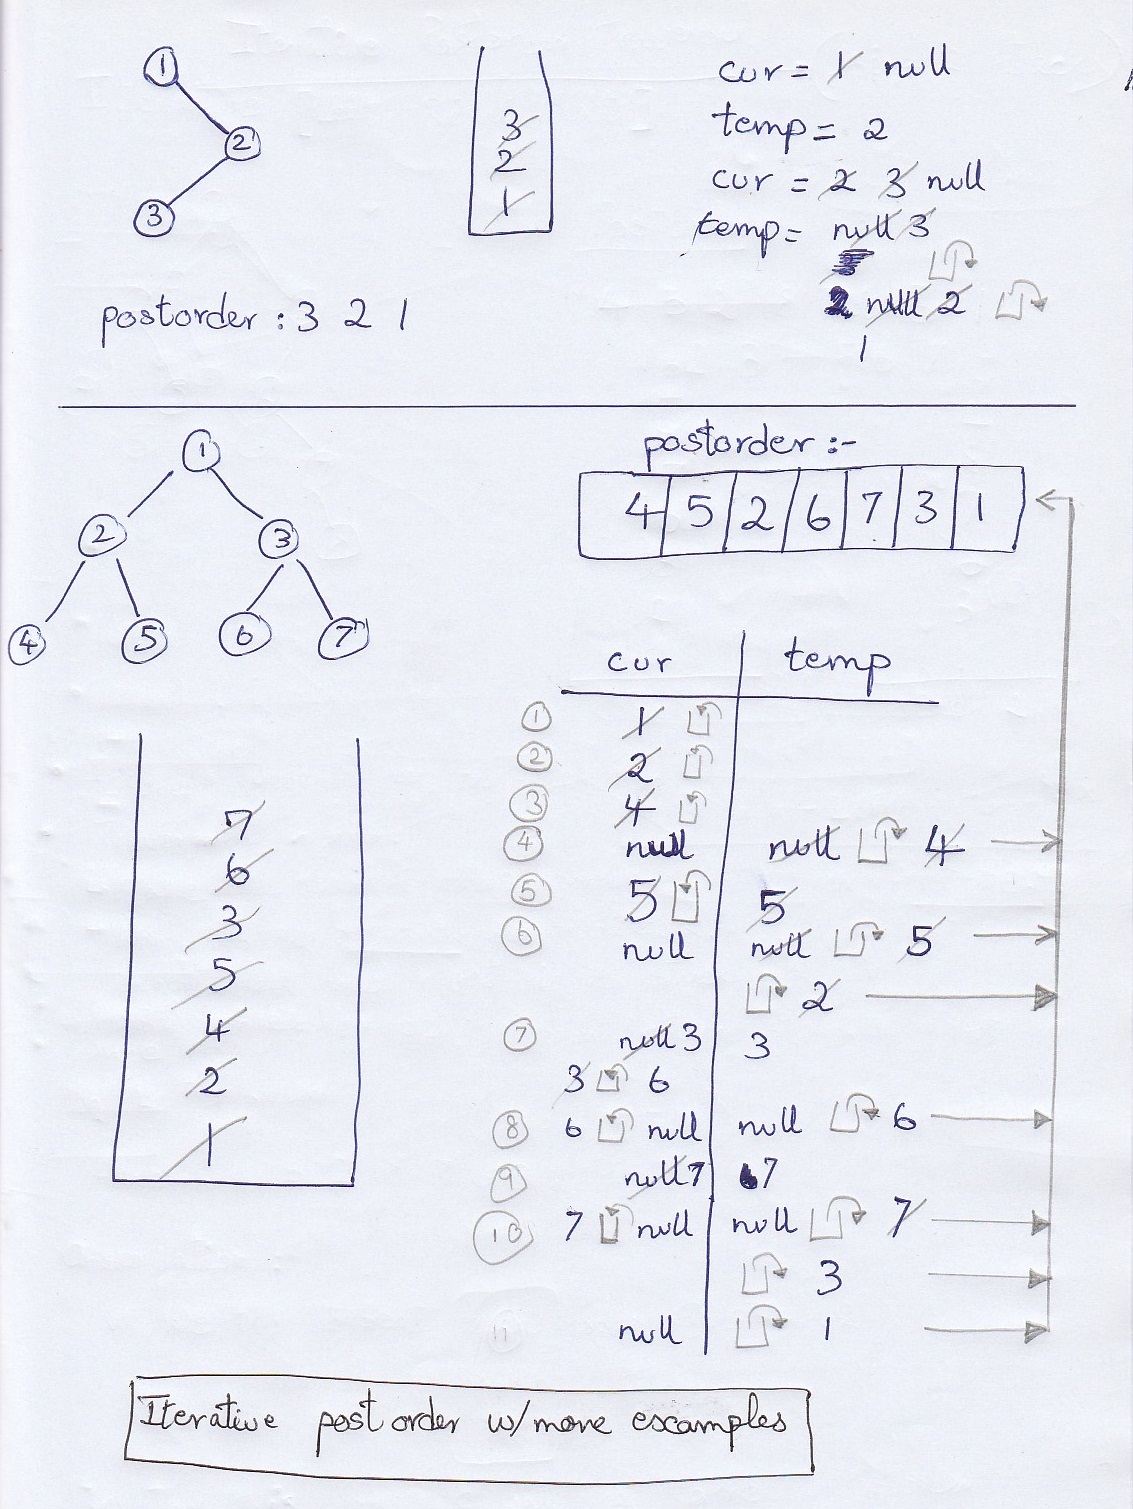 1
2
3
3
2
1
cur = 1 null
temp = 2
cur = 2 3 null
temp = null 3
2 null 2
1
postorder : 3 2 1
1
2 3
4 5 6 7
postorder :-
4 5 2 6 7 3 1
7
6
3
5
4
2
1
cur temp
1 1
2 2
3 4
4 null null 4
5 5 5
6 null null 5
2
7 null 3 3
3 6
8 6 null null 6
9 null 7 7
10 7 null null 7
3
11 null 1
Iterative post order w/more escamples